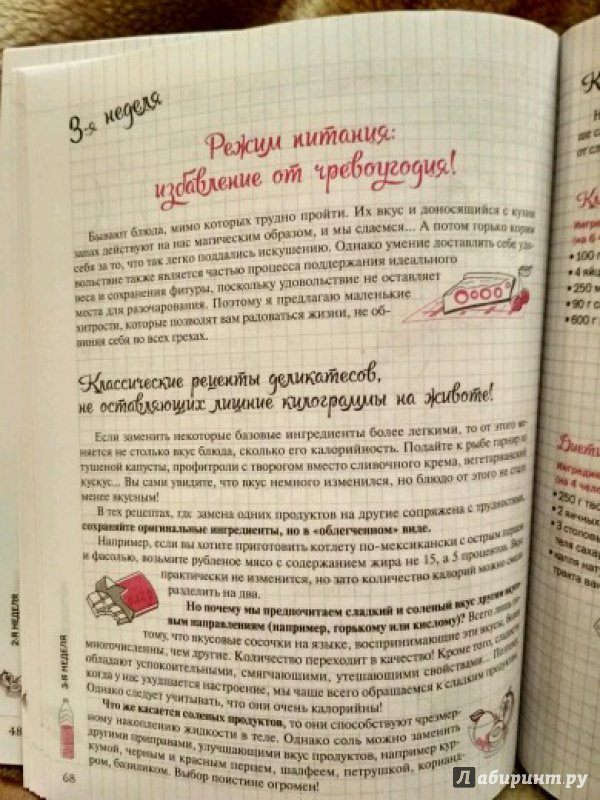 3-я неделя
Режим питания:
избавление от чревоугодия!
Бывают блюда, мимо которых трудно пройти. Их вкус и доносящийся с кухни
запах действуют на нас магическим образом, и мы сдаемся... А потом горько корим
себя за то, что так легко поддались искушению. Однако умение доставлять себе удо-
вольствие также является частью процесса поддержания идеального
веса и сохранения фигуры, поскольку удовольствие не оставляет
места для разочарования. Поэтому я предлагаю маленькие
хитрости, которые позволят вам радоваться жизни, не об-
виняя себя во всех грехах.
Классические рецепты деликатесов,
не оставляющих лишние килограммы на животе!
Если заменить некоторые базовые ингредиенты более легкими, то от этого ме-
няется не столько вкус блюда, сколько его калорийность. Подайте к рыбе гарнир из
тушеной капусты, профитроли с творогом вместо сливочного крема, вегетарианский
кускус... Вы сами увидите, что вкус немного изменился, но блюдо от этого не стало
менее вкусным!
В тех рецептах, где замена одних продуктов на другие сопряжена с трудностями,
сохраняйте оригинальные ингредиенты, но в «облегченном» виде.
Например, если вы хотите приготовить котлету по-мексикански с острым перцем
и фасолью, возьмите рубленое мясо с содержанием жира не 15, а 5 процентов. Вкус
практически не изменится, но зато количество калорий можно смело
разделить на два.
Но почему мы предпочитаем сладкий и соленый вкус другим вкусо-
вым направлениям (например, горькому или кислому)? Всего лишь по-
тому, что вкусовые сосочки на языке, воспринимающие эти вкусы, более
многочисленны, чем другие. Количество переходит в качество! Кроме того, сладости
обладают успокоительными, смягчающими, утешающими свойствами... Поэтому
когда у нас ухудшается настроение, мы чаще всего обращаемся к сладким продуктам.
Однако следует учитывать, что они очень калорийны!
Что же касается соленых продуктов, то они способствуют чрезмер-
ному накоплению жидкости в теле. Однако соль можно заменить
другими приправами, улучшающими вкус продуктов, например кур-
кумой, черным и красным перцем, шалфеем, петрушкой, корианд-
ром, базиликом. Выбор поистине огромен!
68
3-Я НЕДЕЛЯ
2-Я НЕДЕЛЯ
48
Ингре
(на 6
• 100 г
• 4 яйц
• 250 м
• 90 г с
• 600 г
Диети
Ингредие
(на 4 чело
• 250 г тво
• 2 яичных
• 3 столовы
теля сахар
• капля нат
тракта ван
Лабиринт.ру